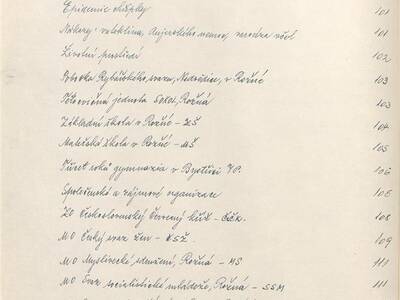 Epidemie chřipky 101
Nákazy: slintavka, Aujezskiho nemoc, varoáza včel 101
Životní prostředí 102
Pobočka Rybářského svazu, Nedvědice, v Rožné 103
Tělocvičná jednota SOKOL, Rožná 103
Základní škola v Rožné - ZŠ 104
Mateřská škola v Rožné - MŠ 105
Čtvrt roků gymnazia v Bystřici n/P. 106
Společenské a zájmové organizace 108
ZO Československý červený kříž - ČČK. 108
MO Český svaz žen - ČSŽ 109
MO Myslivecké sdružení, Rožná - MS 111
MO Svaz socialistické mládeže, Rožná - SSM 111